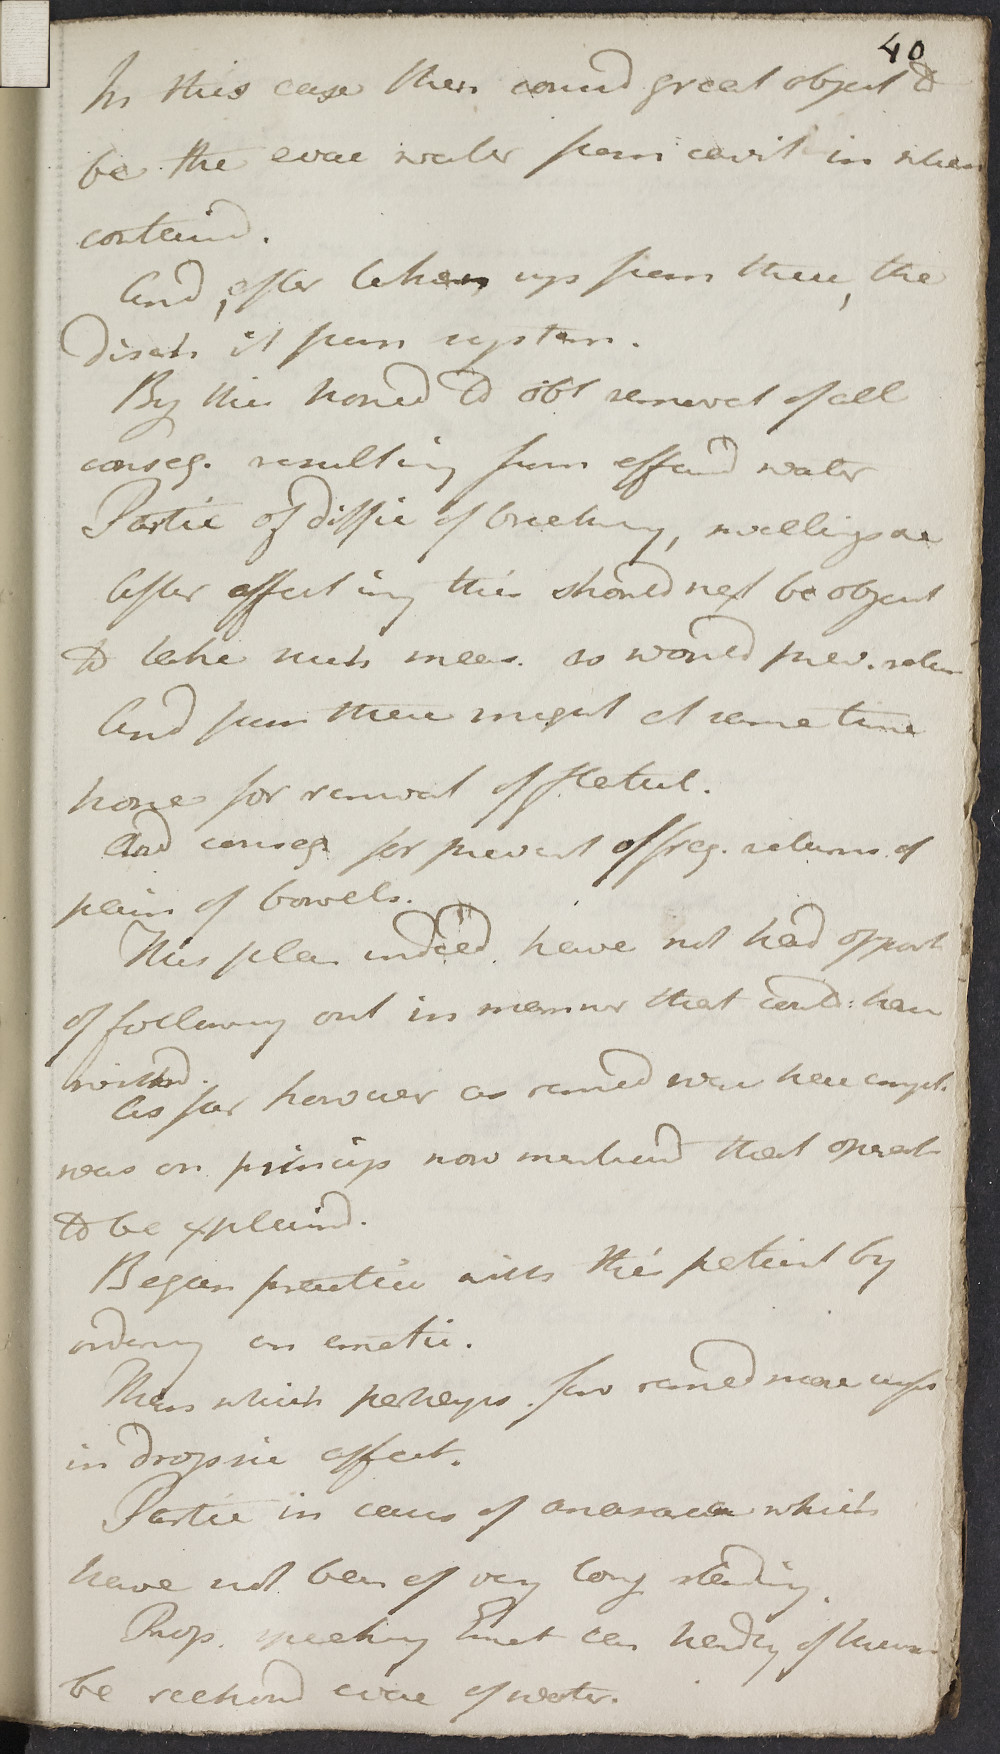 40
In this case then consid great object to
be the evac water from cavit in when
containd.
And, after taken up from thence, the
disch it from system.
By this honed to obt removal of all
conseq. resulting from effusd water
Partic of diffic of breathing, swellings &c
After effecting this should next be object
to take such meas. as would prev. return
And from thence might at same time
hope for removal of flatul.
And conseq for prevent of freq. returns of
pain of bowels.
This plan indeed have not had opport
of following out in manner that could have
wishd.
As far however as remed were here empl.
was on princip now mentiond that operat
to be explaind.
Began practice with this patient by
ordering an emetic.
Than which perhaps few remed more usef
in dropsic affect.
Partic in cases of anasarca which
have not been of very long standing.
Prop. speaking Emet can hardly of themselv
be reckond evac of water.